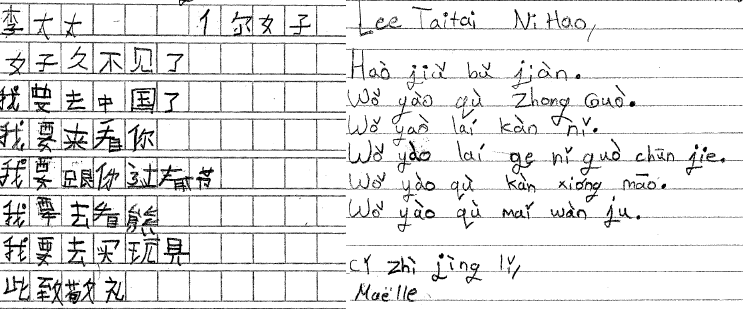 李太太 亻尔女子
女子久不见了
我要去中国了
我要来看你
我要跟你过春节
我要去看熊
我要去买玩具
此致敬礼
Lee Taitai Ni Hao,
Haò jiǔ bǔ jiàn.
Wǒ yào qù Zhong Guò.
Wǒ yaò láí kàn nǐ.
Wǒ yào laí ge nǐ guò chūn jie.
Wǒ yào qù kàn xióng māo.
Wǒ yào qù maǐ wàn ju.
cǐ zhì jìng lǐ,
Maëlle